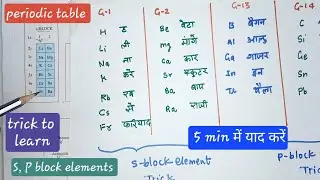 periodic table
G-1 G-2 G-13 G-14
BLOCK
H ह Be बेटा B बैगन C
Li ली Mg मांगे Al आलू S
Na ना Ca कार Ga गाजर
K करे Sr स्कूटर In इन
Rb रब Ba बाप Tl थैला
Cs से Ra राजी
Fr फरियाद
trick to
learn
5 min में याद करें
S, P block elements
S-block element P-block
Trick Trick